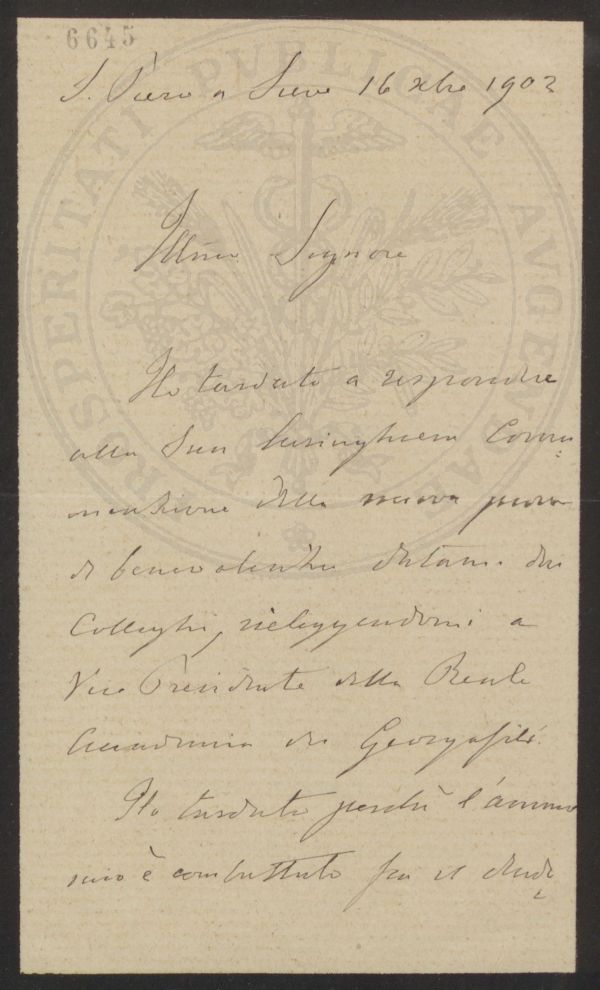 6645
S. Piero a Sieve 16 xbre 1902
Illmo Signore
Ho tardato a rispondere
alla Sua lusinghiera Comu=
nicazione della nuova prova
di benevolenza datami dai
Colleghi, rieleggendomi a
Vice Presidente della Reale
Accademia dei Georgofili.
Ho tardato perché l'animo
mio è combattuto fra il
PROSPERITATI PVBLICAE AVGENDAE